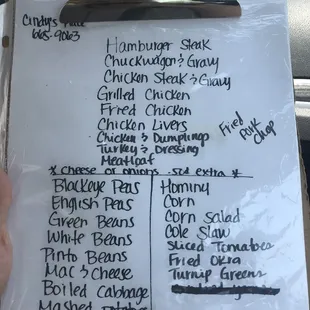 Cindy's Place
665-9063
Hamburger Steak
Chuckwagon & Gravy
Chicken Steak & Gravy
Grilled Chicken
Fried Chicken
Chicken Livers
Chicken & Dumplings
Turkey & Dressing
Meatloaf
Fried Pork Chop
* Cheese or onions .50¢ extra *
Blackeye Peas
English Peas
Green Beans
White Beans
Pinto Beans
Mac & Cheese
Boiled Cabbage
Mashed
Hominy
Corn
Corn Salad
Cole Slaw
Sliced Tomatoes
Fried Okra
Turnip Greens